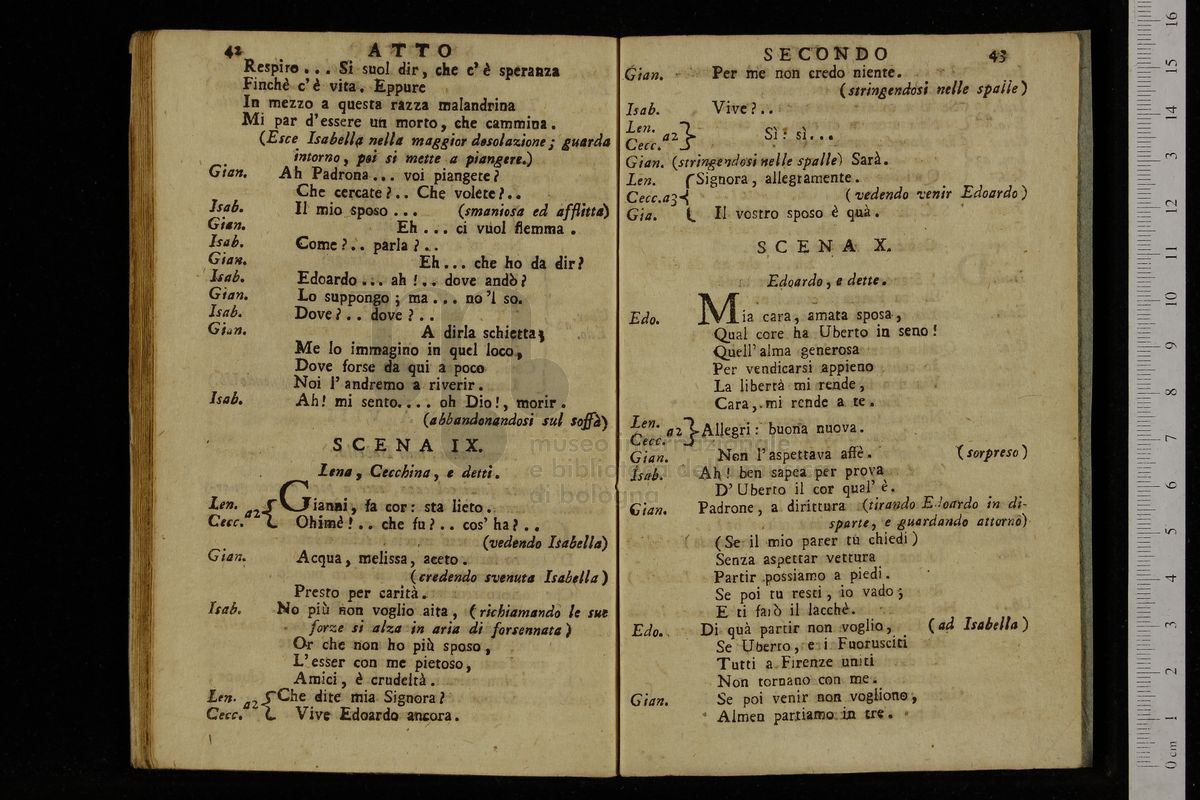 42 ATTO
Respiro ... Si suol dir, che c'è speranza
Finchè c'è vita. Eppure
In mezzo a questa razza malandrina
Mi par d'essere un morto, che cammina.
(Esce Isabella nella maggior desolazione; guarda
intorno, poi si mette a piangere.)
Gian. Ah Padrona... voi piangete?
Che cercate?.. Che volete?..
Isab. Il mio sposo ... (smaniosa ed afflitta)
Gian. Eh ... ci vuol flemma.
Isab. Come?.. parla?..
Gian. Eh... che ho da dir?
Isab. Edoardo ... ah!.. dove andò?
Gian. Lo suppongo; ma... no'l so.
Isab. Dove?.. dove?..
Gian. A dirla schietta;
Me lo immagino in quel loco,
Dove forse da qui a poco
Noi l'andremo a riverir.
Isab. Ah! mi sento.... oh Dio!, morir.
(abbandonandosi sul soffà)
SCENA IX.
Lena, Cecchina, e detti.
Len. a2 { Gianni, fa cor: sta lieto.
Cecc. Ohimè!.. che fu?.. cos'ha?..
(vedendo Isabella)
Gian. Acqua, melissa, aceto.
(credendo svenuta Isabella)
Presto per carità.
Isab. No più non voglio aita, (richiamando le sue
forze si alza in aria di forsennata)
Or che non ho più sposo,
L'esser con me pietoso,
Amici, è crudeltà.
Len. a2 { Che dite mia Signora?
Cecc. Vive Edoardo ancora.
SECONDO 43
Gian. Per me non credo niente.
(stringendosi nelle spalle)
Isab. Vive?..
Len. a2 } Sì: sì...
Cecc.
Gian. (stringendosi nelle spalle) Sarà.
Len. { Signora, allegramente.
Cecc. a3 (vedendo venir Edoardo)
Gia. Il vostro sposo è quà.
SCENA X.
Edoardo, e dette.
Edo. Mia cara, amata sposa,
Qual core ha Uberto in seno!
Quell'alma generosa
Per vendicarsi appieno
La libertà mi rende,
Cara, mi rende a te.
Len. a2 } Allegri: buona nuova.
Cecc.
Gian. Non l'aspettava affè. (sorpreso)
Isab. Ah! ben sapea per prova
D'Uberto il cor qual'è.
Gian. Padrone, a dirittura (tirando Edoardo in di-
sparte, e guardando attorno)
(Se il mio parer tu chiedi)
Senza aspettar vettura
Partir possiamo a piedi.
Se poi tu resti, io vado;
E ti farò il lacchè.
Edo. Di quà partir non voglio, (ad Isabella)
Se Uberto, e i Fuorusciti
Tutti a Firenze uniti
Non tornano con me.
Gian. Se poi venir non vogliono,
Almen partiamo in tre.
museo internazionale
e biblioteca della
di bologna
0 cm 1 2 3 4 5 6 7 8 9 10 11 12 13 14 15 16